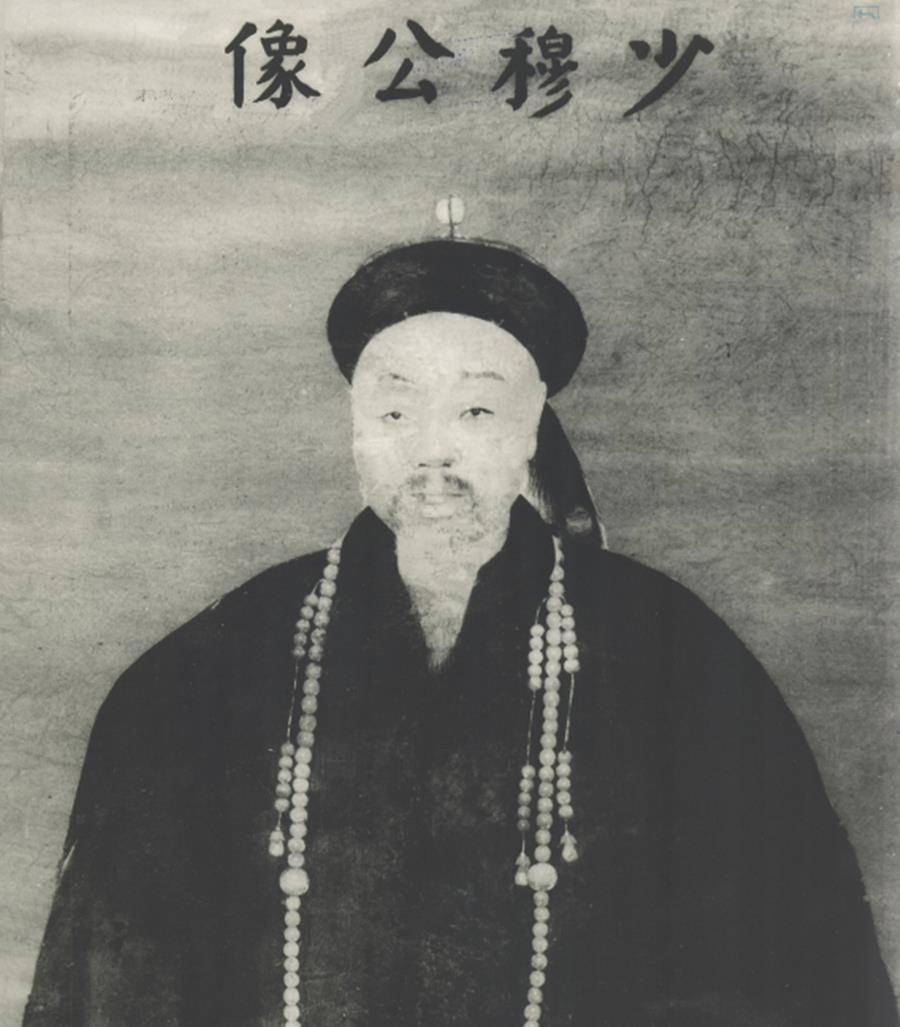 少穆公像